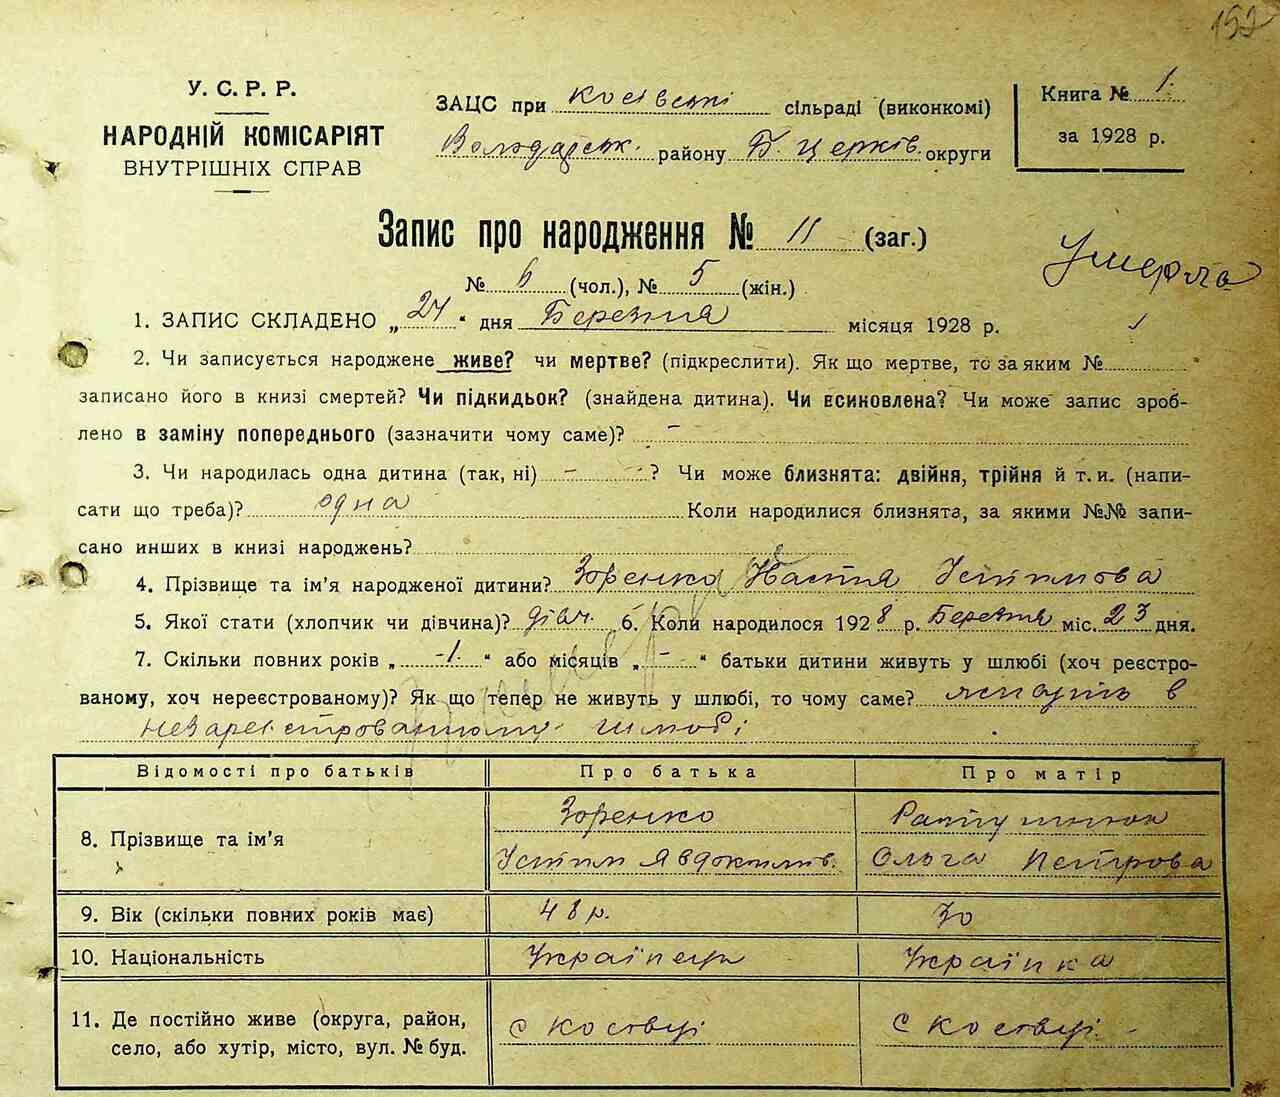 152
У. С. Р. Р.
НАРОДНІЙ КОМІСАРІЯТ
ВНУТРІШНІХ СПРАВ
ЗАЦС при косівські сільраді (виконкомі)
Володарськ. району Б. церків. округи
Книга № 1.
за 1928 р.
Запис про народження № 11 (заг.)
Умерла
№ 6 (чол.), № 5 (жін.)
1. ЗАПИС СКЛАДЕНО „24" дня Березня місяця 1928 р.
2. Чи записується народжене живе? чи мертве? (підкреслити). Як що мертве, то за яким №
записано його в книзі смертей? Чи підкидьок? (знайдена дитина). Чи всиновлена? Чи може запис зроб-
лено в заміну попереднього (зазначити чому саме)? -
3. Чи народилась одна дитина (так, ні) - ? Чи може близнята: двійня, трійня й т. и. (напи-
сати що треба)? одна Коли народилися близнята, за якими №№ запи-
сано инших в книзі народжень?
4. Прізвище та ім'я народженої дитини? Зоренко Настя Устимова
5. Якої стати (хлопчик чи дівчина)? дівч. 6. Коли народилося 1928 р. Березня міс. 23 дня.
7. Скільки повних років „ -1. " або місяців „ - " батьки дитини живуть у шлюбі (хоч реєстро-
ваному, хоч нереєстрованому)? Як що тепер не живуть у шлюбі, то чому саме? в
Відомості про батьків Про батька Про матір
8. Прізвище та ім'я Зоренко
Устим Явдоким. Ольга Петрова
9. Вік (скільки повних років має) 48 р. 30
10. Національність Українець Українка
11. Де постійно живе (округа, район, с Косівці с Косівці
село, або хутір, місто, вул. № буд.